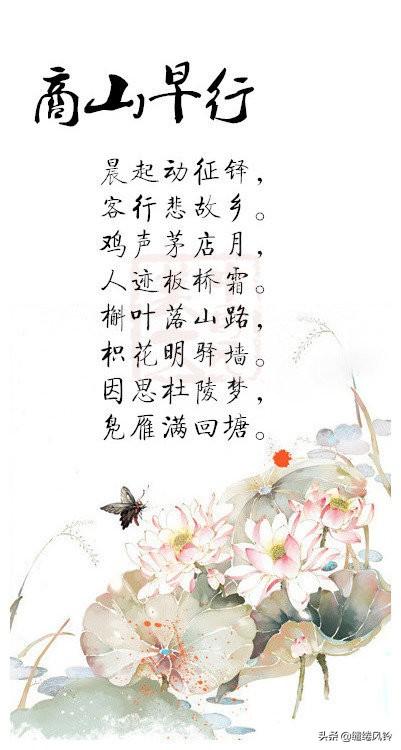 商山早行
晨起动征铎，
客行悲故乡。
鸡声茅店月，
人迹板桥霜。
槲叶落山路，
枳花明驿墙。
因思杜陵梦，
凫雁满回塘。
头条@缠绕风铃